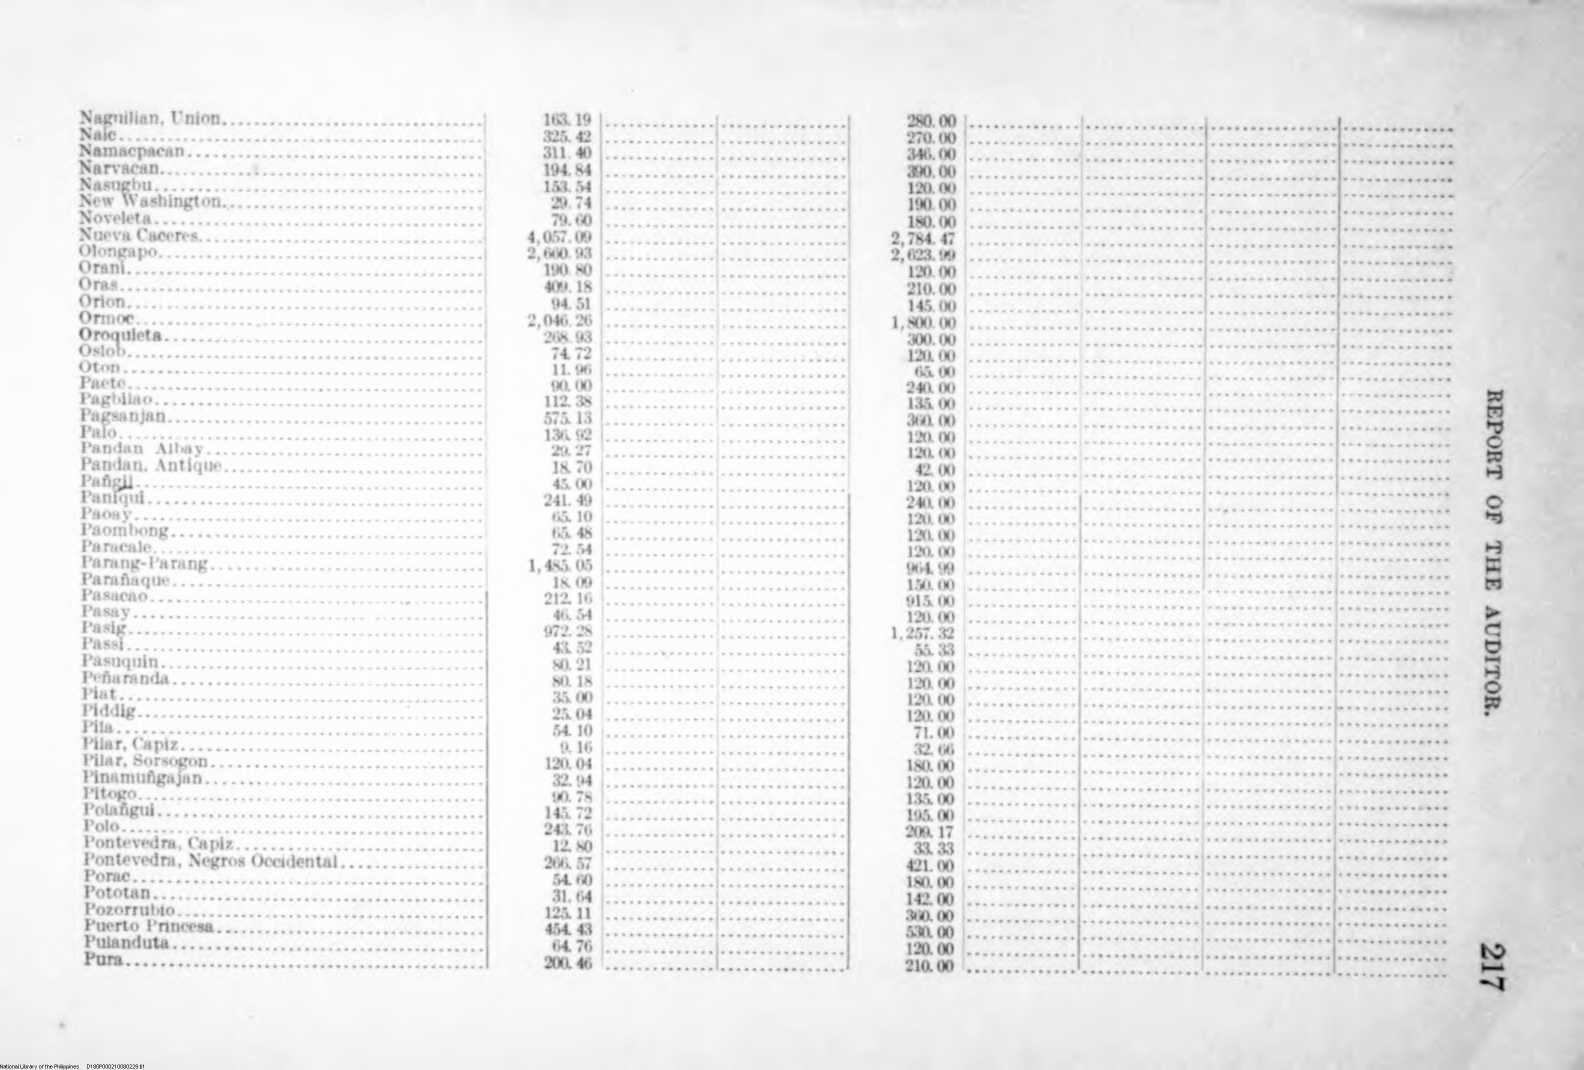 Naguilian, Union 163.19 280.00
Naic 325.42 270.00
Namacpacan 311.40 346.00
Narvacan 194.84 390.00
Nasugbu 153.54 120.00
New Washington 29.74 190.00
Noveleta 79.60 180.00
Nueva Caceres 4,057.09 2,784.47
Olongapo 2,660.93 2,623.99
Orani 190.80 120.00
Oras 409.18 210.00
Orion 94.51 145.00
Ormoc 2,046.26 1,800.00
Oroquieta 268.93 300.00
Oslob 74.72 120.00
Oton 11.96 65.00
Paete 90.00 240.00
Pagbilao 112.38 135.00
Pagsanjan 575.13 360.00
Palo 136.92 120.00
Pandan Albay 29.27 120.00
Pandan, Antique 18.70 42.00
Pañgil 45.00 120.00
Paniqui 241.49 240.00
Paoay 65.10 120.00
Paombong 65.48 120.00
Paracale 72.54 120.00
Parang-Parang 1,485.05 964.99
Parañaque 18.09 150.00
Pasacao 212.16 915.00
Pasay 46.54 120.00
Pasig 972.28 1,257.32
Passi 43.52 55.33
Pasuquin 80.21 120.00
Peñaranda 80.18 120.00
Piat 35.00 120.00
Piddig 25.04 120.00
Pila 54.10 71.00
Pilar, Capiz 9.16 32.66
Pilar, Sorsogon 120.04 180.00
Pinamuñgajan 32.94 120.00
Pitogo 90.78 135.00
Polañgui 145.72 195.00
Polo 243.76 209.17
Pontevedra, Capiz 12.80 33.33
Pontevedra, Negros Occidental 266.57 421.00
Porac 54.60 180.00
Pototan 31.64 142.00
Pozorrubio 125.11 360.00
Puerto Princesa 454.43 530.00
Pulanduta 64.76 120.00
Pura 200.46 210.00
REPORT OF THE AUDITOR.
217
National Library of the Philippines